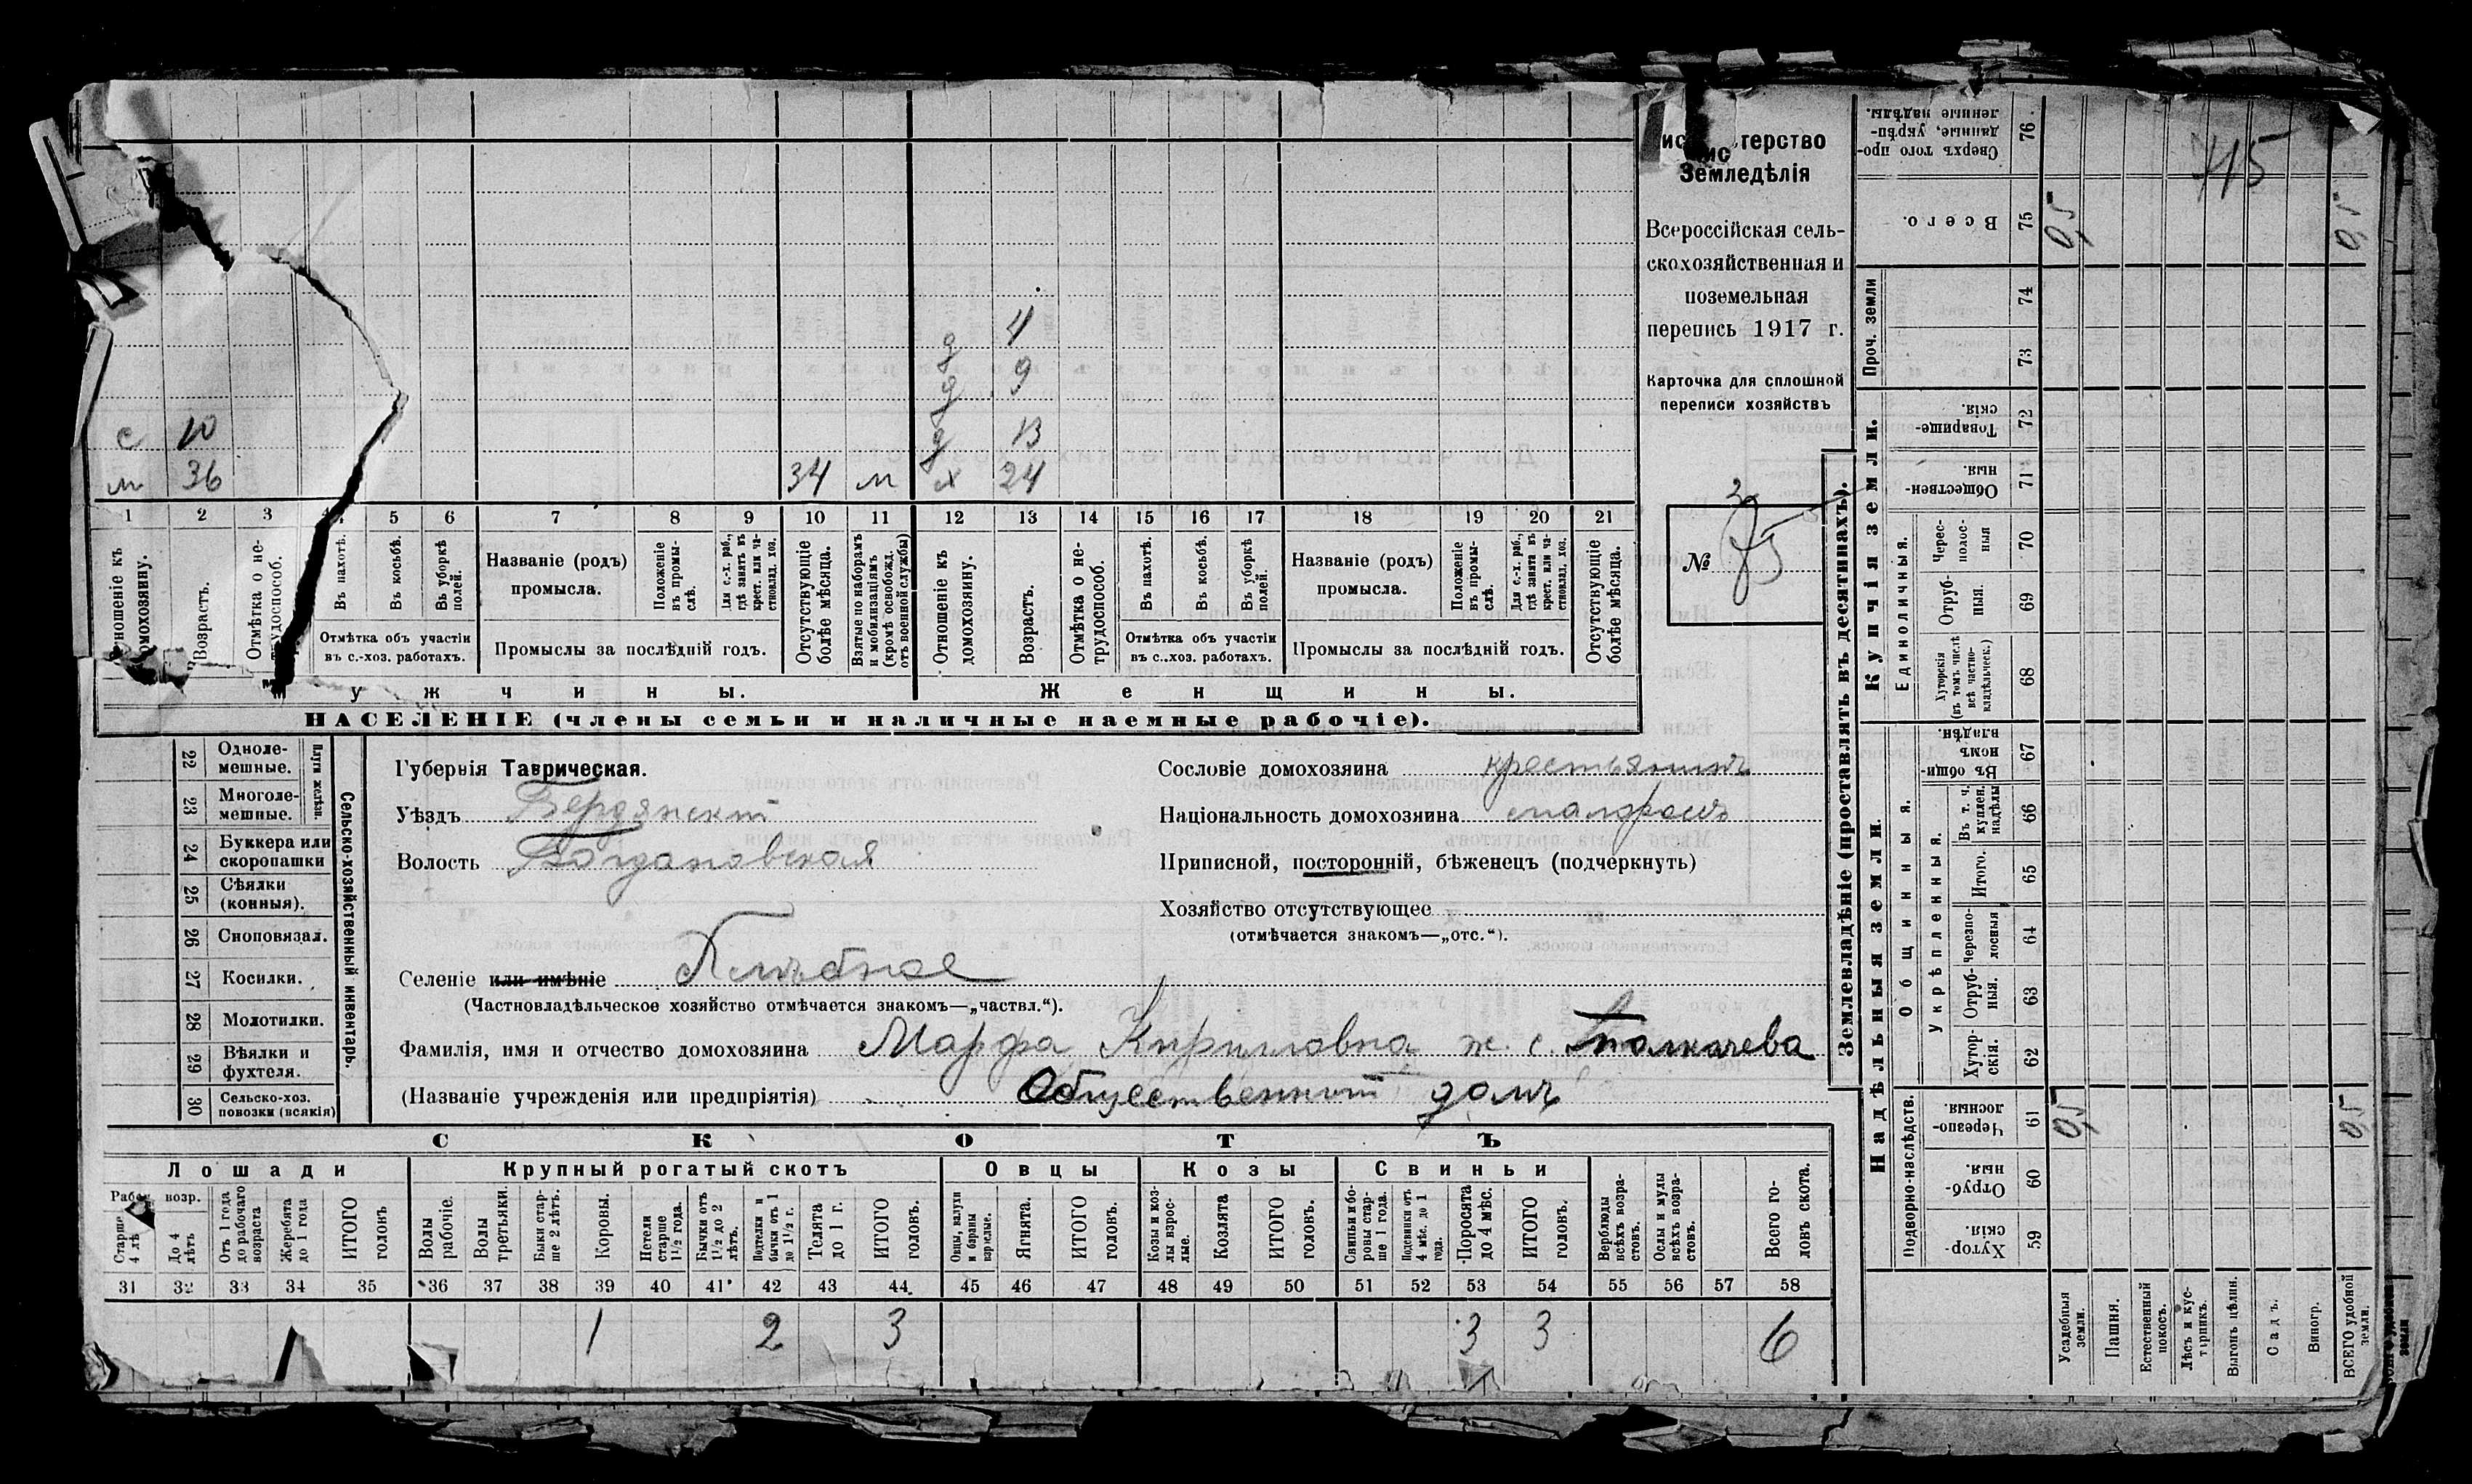 Министерство
Земледѣлія
Всероссійская сель-
скохозяйственная и
поземельная
перепись 1917 г.
Карточка для сплошной
переписи хозяйствъ
№ 85
д 4
д 9
с 10 д 13
м 36 34 м х 24
1 2 3 4 5 6 7 8 9 10 11 12 13 14 15 16 17 18 19 20 21
Отношеніе къ домохозяину.
Возрастъ.
Отмѣтка о не-трудоспособ.
Въ пахотѣ.
Въ косьбѣ.
Въ уборкѣ полей.
Отмѣтка объ участіи въ с.-хоз. работахъ.
Названіе (родъ) промысла.
Положеніе въ промы-слѣ.
Для с.-х. раб., гдѣ занятъ въ крест. или ча-стновлад. хоз.
Промыслы за послѣдній годъ.
Отсутствующіе болѣе мѣсяца.
Взятые по наборамъ и мобилизаціямъ (кромѣ освобожд. отъ военной службы)
Отношеніе къ домохозяину.
Возрастъ.
Отмѣтка о не-трудоспособ.
Въ пахотѣ.
Въ косьбѣ.
Въ уборкѣ полей.
Отмѣтка объ участіи въ с.-хоз. работахъ.
Названіе (родъ) промысла.
Положеніе въ промы-слѣ.
Для с.-х. раб., гдѣ занята въ крест. или ча-стновлад. хоз.
Промыслы за послѣдній годъ.
Отсутствующіе болѣе мѣсяца.
Мужчины. Женщины.
НАСЕЛЕНІЕ (члены семьи и наличные наемные рабочіе).
22 Одноле-мешные.
23 Многоле-мешные.
Плуги желѣзн.
24 Буккера или скоропашки
25 Сѣялки (конныя).
26 Сноповязал.
27 Косилки.
28 Молотилки.
29 Вѣялки и фухтеля.
30 Сельско-хоз. повозки (всякія)
Сельско-хозяйственный инвентарь.
Губернія Таврическая.
Уѣздъ Бердянскій
Волость Богдановская
Селеніе или имѣніе
(Частновладѣльческое хозяйство отмѣчается знакомъ—„частвл.“).
Сословіе домохозяина крестьянинъ
Національность домохозяина малороссъ
Приписной, посторонній, бѣженецъ (подчеркнуть)
Хозяйство отсутствующее
(отмѣчается знакомъ—„отс.“).
Фамилія, имя и отчество домохозяина Марфа Кирилловна ж. с. Толкачева
(Названіе учрежденія или предпріятія) Общественный домъ
СКОТЪ
Лошади Крупный рогатый скотъ Овцы Козы Свиньи
Рабоч. возр.
Старше 4 лѣ
До 4 лѣтъ
Отъ 1 года до рабочаго возраста
Жеребята до 1 года
ИТОГО головъ
Волы рабочіе.
Волы третьяки.
Быки стар-ше 2 лѣтъ.
Коровы.
Нетели старше 1½ года.
Бычки отъ 1½ до 2 лѣтъ.
Подтелки и бычки отъ 1 до 1½ г.
Телята до 1 г.
ИТОГО головъ.
Овцы, валухи и бараны взрослые.
Ягнята.
ИТОГО головъ.
Козы и коз-лы взрос-лые.
Козлята
ИТОГО головъ.
Свиньи и бо-ровы стар-ше 1 года.
Подсвинки отъ 4 мѣс. до 1 года.
Поросята до 4 мѣс.
ИТОГО головъ.
Верблюды всѣхъ возра-стовъ.
Ослы и мулы всѣхъ возра-стовъ.
Всего го-ловъ скота.
31 32 33 34 35 36 37 38 39 40 41 42 43 44 45 46 47 48 49 50 51 52 53 54 55 56 57 58
1 2 3 3 3 6
Землевладѣніе (проставлять въ десятинахъ).
Надѣльныя земли. Купчія земли. Проч. земли
Подворно-наслѣдств.
Общинныя.
Укрѣпленныя.
Единоличныя.
Хутор-скія. 59
Отруб-ныя. 60
Черезпо-лосныя. 61
Хутор-скія. 62
Отруб-ныя. 63
Черезпо-лосныя 64
Итого. 65
Въ т. ч. куплен. надѣлы 66
Въ общин-номъ владѣн. 67
Хуторскія (въ томъ числѣ всѣ частно-владѣльческ.) 68
Отруб-ныя. 69
Черес-полос-ныя 70
Обществен-ныя. 71
Товарище-скія. 72
73
74
Всего. 75
Сверхъ того про-данные, укрѣп-ленные надѣлы. 76
Усадебныя земли. 0,5 0,5
Пашня.
Естественный покосъ.
Лѣсъ и кус-тарникъ.
Выгонъ цѣлин.
Садъ.
Виногр.
ВСЕГО удобной земли. 0,5 0,5